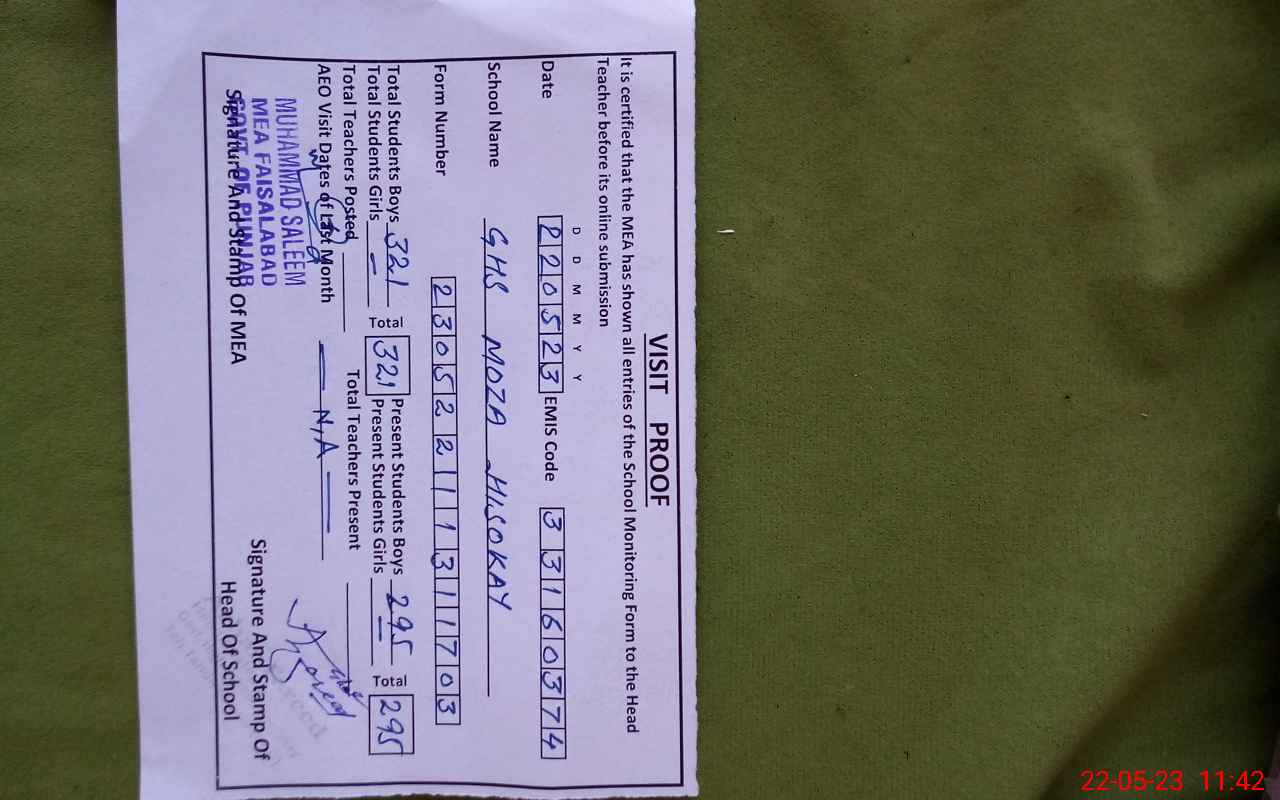 VISIT PROOF
It is certified that the MEA has shown all entries of the School Monitoring Form to the Head
Teacher before its online submission
D D M M Y Y
Date 220523 EMIS Code 33160374
School Name GHS MOZA HISOKAY
Form Number 23052211311703
Total Students Boys 321 Present Students Boys 295
Total Students Girls — Total 321 Present Students Girls — Total 295
Total Teachers Posted Total Teachers Present
AEO Visit Dates of Last Month — N,A —
MUHAMMAD SALEEM
MEA FAISALABAD
GOVT. OF PUNJAB
Signature And Stamp Of MEA
Signature And Stamp Of
Head Of School
22-05-23 11:42